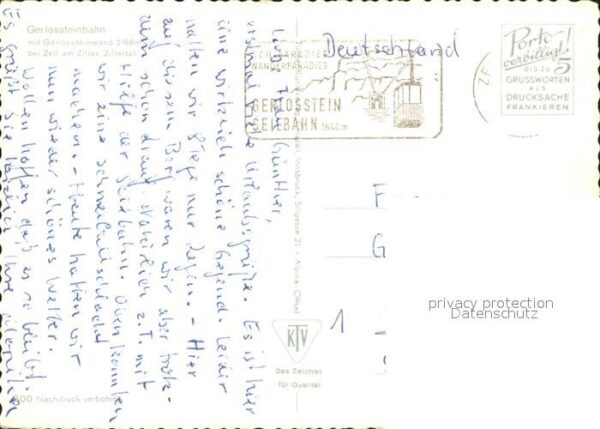 Gerlossteinbahn
mit Gerlossteinwand 2166m
bei Zell am Ziller, Zillertal
SCHIPARADIES
WANDERPARADIES
GERLOSSTEIN
SEILBAHN 1640m
Deutschland
Porto
verbilligt!
BIS ZU 5
GRUSSWORTEN
ALS
DRUCKSACHE
FRANKIEREN
Günther,
Urlaubsgrüße. Es ist hier
eine wirklich schöne Gegend. Leider
hatten wir 8 Tage nur Regen. - Hier
auf diesem Berg waren wir aber trotz-
dem schon drauf. Natürlich z.T. mit
Hilfe der Seilbahn. Oben konnten
wir eine Schneeballschlacht
machen. - Heute hatten wir
nun wieder schönes Wetter.
Wollen hoffen, daß es so bleibt.
Es grüßt Sie herzlich Ihre
Innsbruck, Sillgasse 21 - Alpina-Offset
F
G
1
KTV
Das Zeichen
für Qualität
Nachdruck verboten
privacy protection
Datenschutz